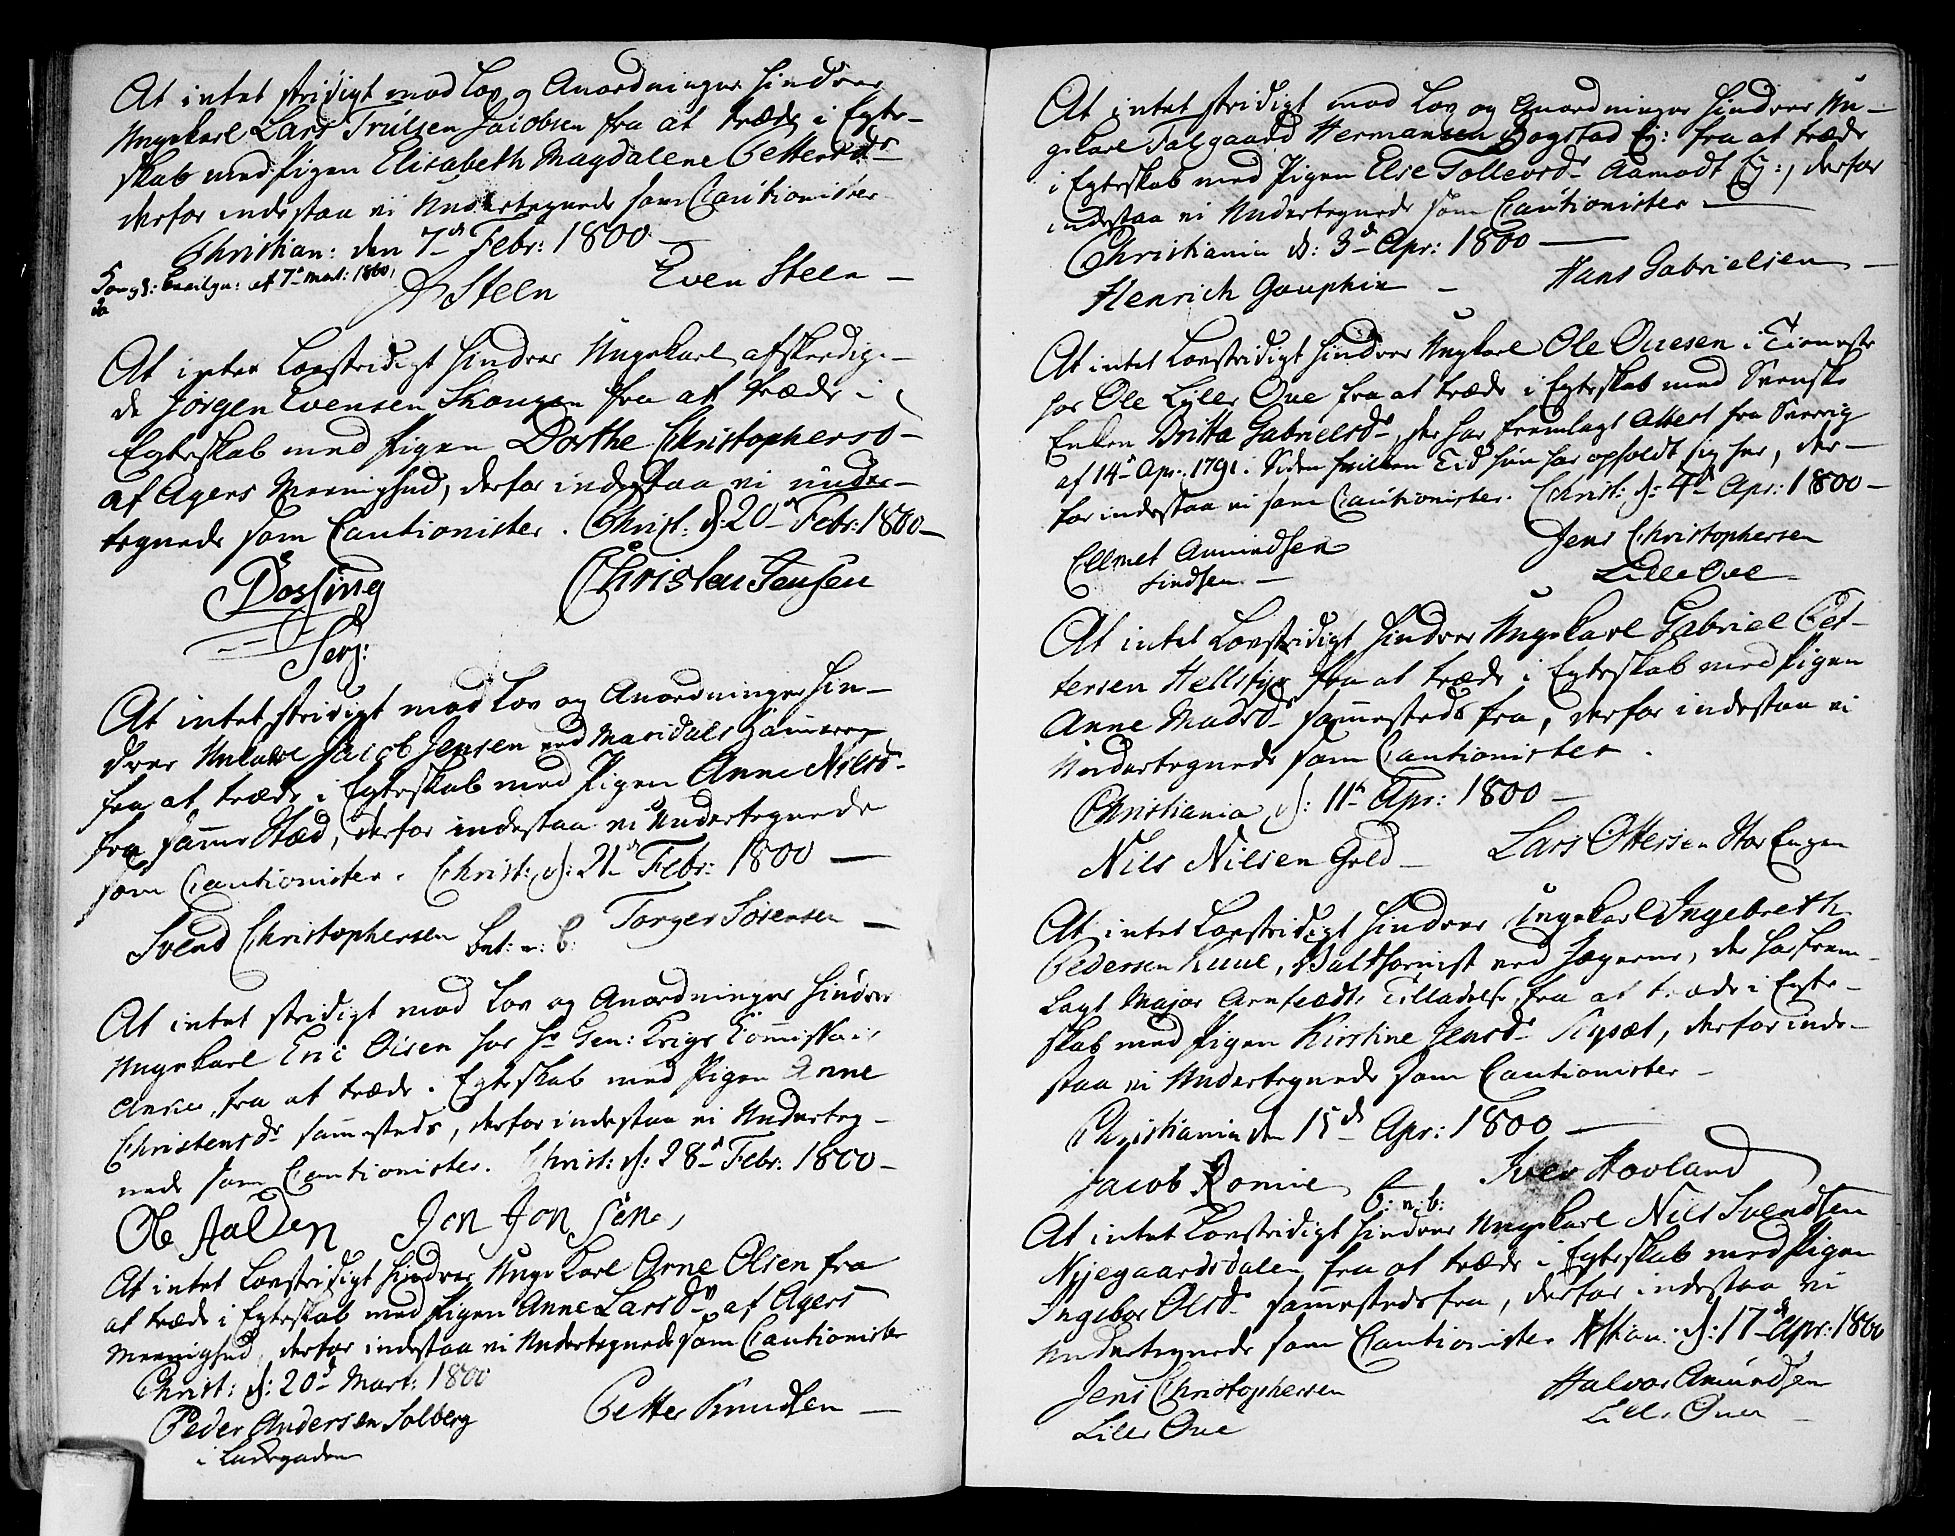 At intet stridigt mod Lov og Anordninger hindrer
Ungekarl Lars Trulsen Jacobsen fra at træde i Egte-
skab med Pigen Elisabeth Magdalene Pettersdr
derfor indestaa vi Undertegnede som Cautionister
Christian: den 7de Febr: 1800
Kongs: Bevilgn: af 7de Mart: 1800
P Steen Even Steen
At intet Lovstridigt hindrer Ungekarl afskedige-
de Jørgen Evensen Skougen fra at træde i
Egteskab med Pigen Dorthe Christophersd
af Agers Meenighed, derfor indestaa vi under-
tegnede som Cautionister. Christ: d: 20de Febr: 1800
Døsling Christen Jensen
Serj:
At intet stridigt mod Lov og Anordninger hin-
drer Unkarl Jacob Jensen ved Maridals Hammer
fra at træde i Egteskab med Pigen Anne Nilsdr
fra samme Stæd, derfor indestaa vi Undertegnede
som Cautionister. Christ: d: 21de Febr: 1800
Svend Christophersen Torger Sørensen
At intet stridigt mod Lov og Anordninger hindrer
Ungekarl Eric Olsen hos Hr Gen: Krigs Commissair
Anker, fra at træde i Egteskab med Pigen Anne
Christensdr sammesteds, derfor indestaa vi Underteg-
nede som Cautionister. Christ: d: 28de Febr: 1800
Ole Jon Jonsen
At intet Lovstridigt hindrer Ungekarl Arne Olsen fra
at træde i Egteskab med Pigen Anne Larsdr af Agers
Meenighed, derfor indestaa vi Undertegnede som Cautionister
Christ: d: 20de Mart: 1800
Peder Andersen Solberg Petter Knudsen
i Ladegaden
At intet stridigt mod Lov og Anordninger hindrer Un-
gekarl Falgaard Hermansen Bogstad Ej: fra at træde
i Egteskab med Pigen Else Tollevsdr Aamodt Ej:, derfor
indestaa vi Undertegnede som Cautionister
Christiania d: 3de Apr: 1800
Henrich Gouphin Hans Gabrielsen
At intet Lovstridigt hindrer Ungkarl Ole Ouesen i Tieneste
hos Ole Lille Oue fra at træde i Egteskab med Svenske
Enken Britta Gabrielsdr, der har fremlagt Attest fra Sverrig
af 14de Apr: 1791. Siden hvilken Tid hun har opholdt sig her, der-
for indestaa vi som Cautionister. Christ: d: 4de Apr: 1800
Ellmet Amundsen Jens Christophersen
Lindsen Lille Oue
At intet Lovstridigt hindrer Ungekarl Gabriel Pet-
tersen Hellsfyr fra at træde i Egteskab med Pigen
Anne Madsdr sammesteds fra, derfor indestaa vi
Undertegnede som Cautionister.
Christiania d: 11te Apr: 1800
Nils Nilsen Lars Ottersen Stor Engen
At intet Lovstridigt hindrer Ungekarl Ingebreth
Pedersen Ruue, Valdhornist ved Jægerne, der har frem-
lagt Major Arnfeldts Tilladelse, fra at træde i Egte-
skab med Pigen Kirstine Jensdr, derfor inde-
staa vi Undertegnede som Cautionister
Christiania den 15de Apr: 1800
Jacob Iver Hovland
At intet Lovstridigt hindrer Ungekarl Nils Svendsen
Nyegaardsdalen fra at træde i Egteskab med Pigen
Ingebor Olsdr sammesteds fra, derfor indestaa vi
Undertegnede som Cautionister Xstian: d: 17de Apr: 1800
Jens Christophersen Halvor Amundsen
Lille Oue Lille Ouen